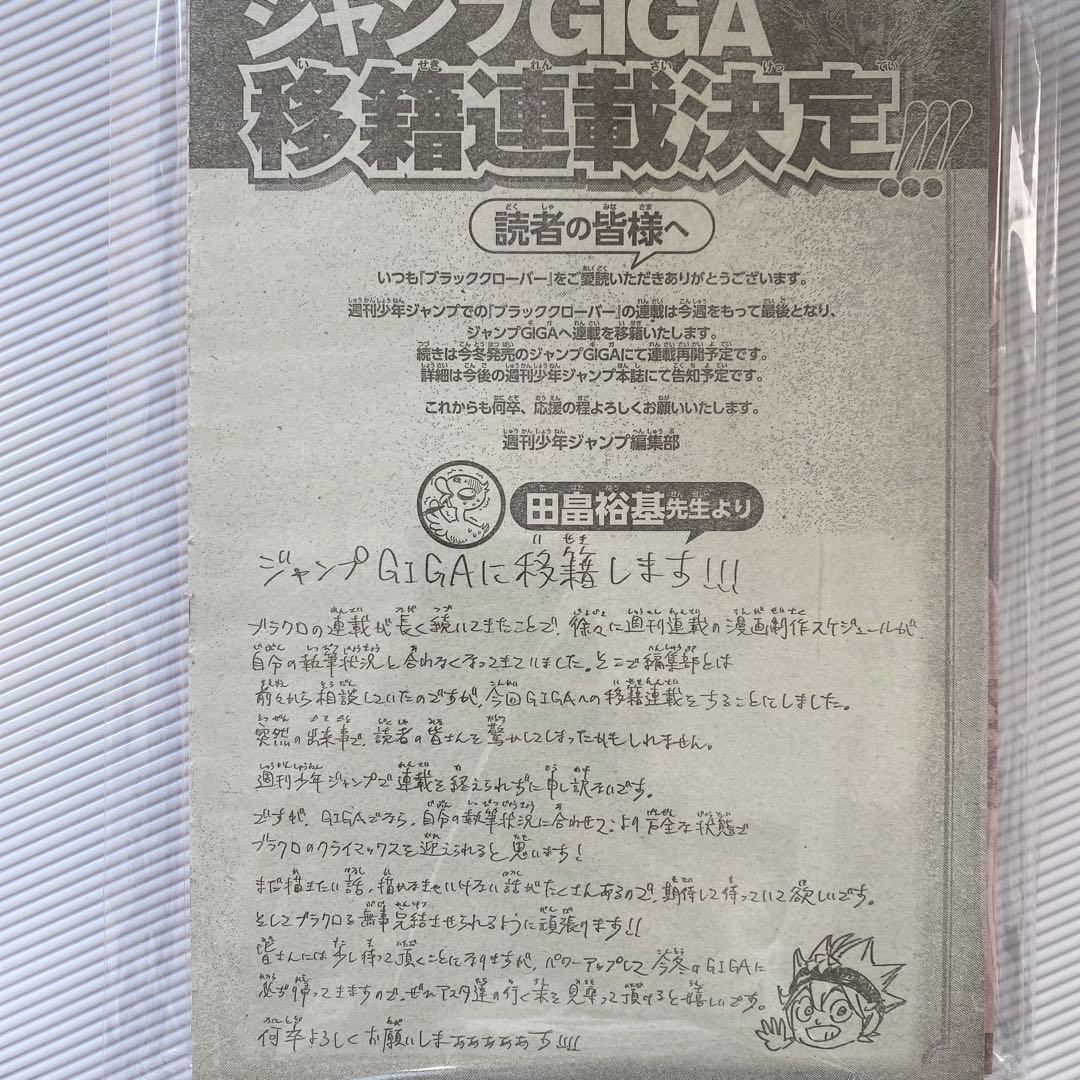 ジャンプGIGA
移籍連載決定!!!
読者の皆様へ
いつも『ブラッククローバー』をご愛読いただきありがとうございます。
週刊少年ジャンプでの『ブラッククローバー』の連載は今週をもって最後となり、
ジャンプGIGAへ連載を移籍いたします。
続きは今冬発売のジャンプGIGAにて連載再開予定です。
詳細は今後の週刊少年ジャンプ本誌にて告知予定です。
これからも何卒、応援の程よろしくお願いいたします。
週刊少年ジャンプ編集部
田畠裕基先生より
ジャンプGIGAに移籍します!!!
ブラクロの連載が長く続いてきたことで、徐々に週刊連載の漫画制作スケジュールが
自分の執筆状況と合わなくなってきていました。そこで編集部とは
前々から相談していたのですが、今回GIGAへの移籍連載をすることにしました。
突然の出来事で、読者の皆さんを驚かしてしまったかもしれません。
週刊少年ジャンプで連載を終えられずに申し訳ないです。
ですが、GIGAでなら、自分の執筆状況に合わせて、より万全な状態で
ブラクロのクライマックスを迎えられると思います!
まだ描きたい話、描かなきゃいけない話がたくさんあるので、期待して待っていて欲しいです。
そしてブラクロを無事完結させられるように頑張ります!!
皆さんには少し待って頂くことになりますが、パワーアップして今冬のGIGAに
必ず帰ってきますので、ぜひアスタ達の行く末を見守って頂けると嬉しいです。
何卒よろしくお願いしまぁぁぁぁぁす!!!!